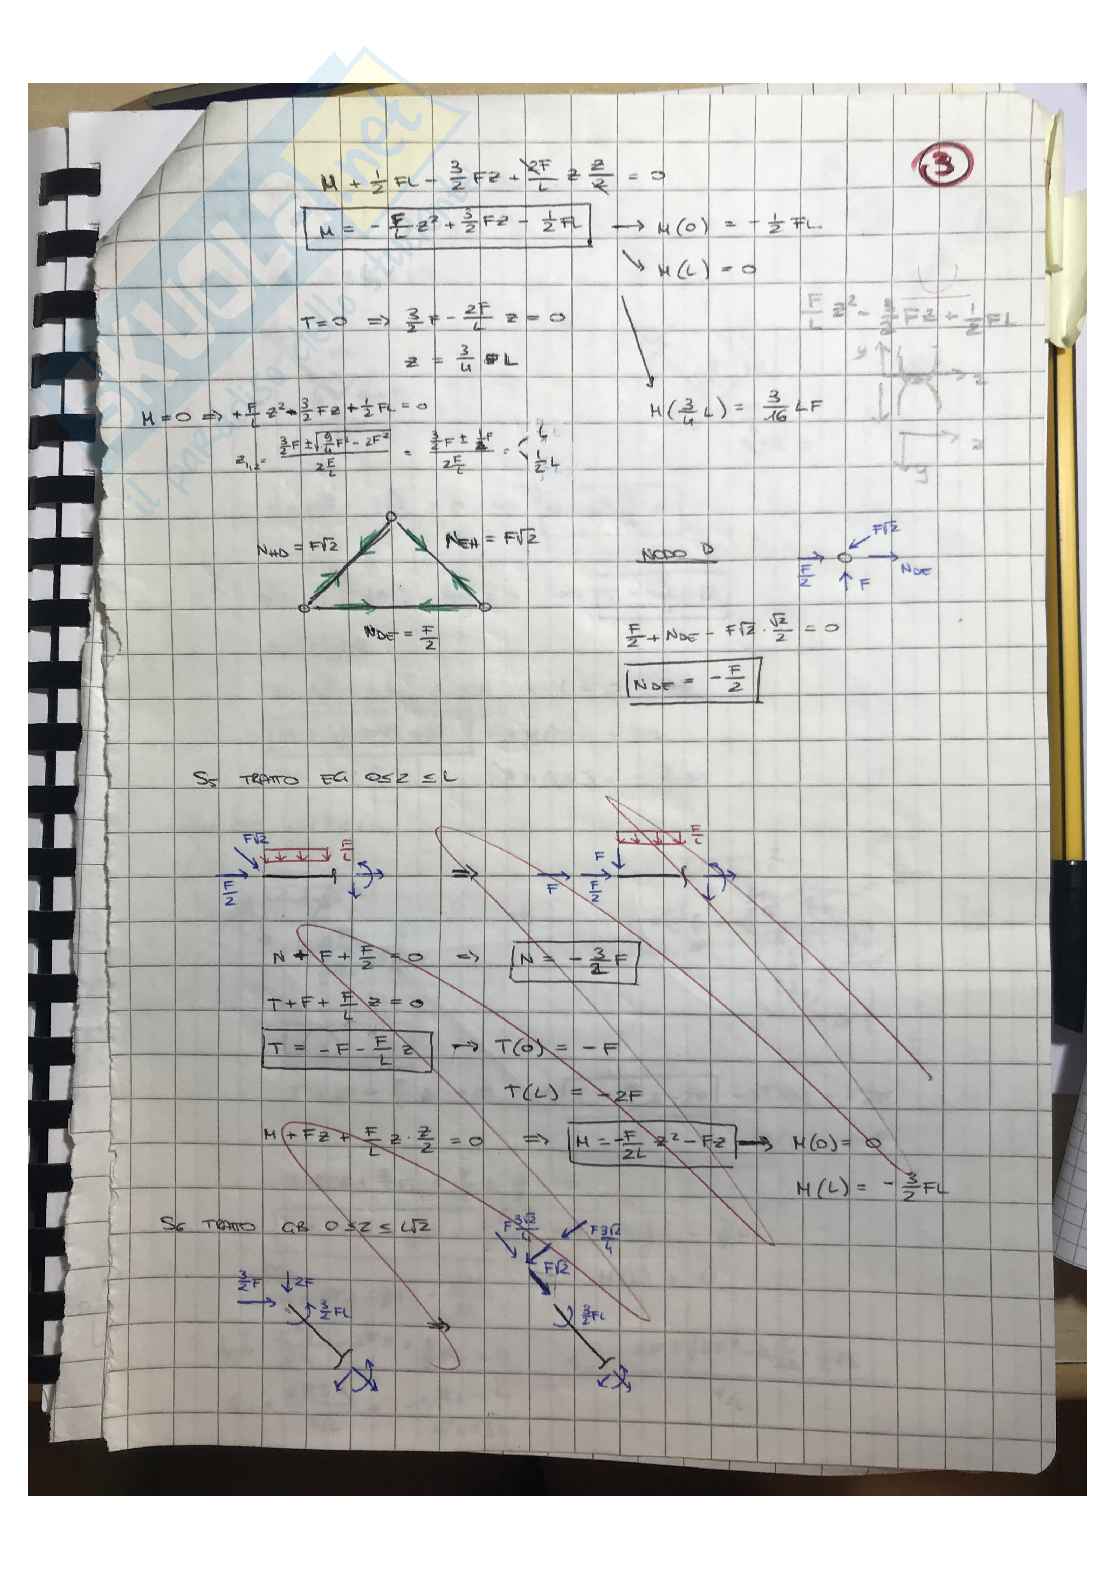 3
M + 1/2 FL - 3/2 FZ + 2F/L Z Z/2 = 0
M = - F/L Z² + 3/2 FZ - 1/2 FL → M(0) = - 1/2 FL
↘ M(L) = 0
T=0 ⇒ 3/2 F - 2F/L Z = 0
F/L Z² - 3/2 FZ + 1/2 FL
Z = 3/4 L
M(3/4 L) = 3/16 LF
M=0 ⇒ + F/L Z² - 3/2 FZ + 1/2 FL = 0
Z1,2 = (3/2 F ± √(9/4 F² - 2F²)) / (2F/L) = (3/2 F ± 1/2 F) / (2F/L) = L
1/2 L
y z
z
y
NHD = F√2 NEH = F√2
NDE = F/2
NODO D
F√2
F/2 NDE
F
F/2 + NDE - F√2 · √2/2 = 0
NDE = - F/2
S5 TRATTO EG 0≤Z≤L
F√2 F/L F/2 ⇒ F F/2 F F/L
N + F + F/2 = 0 ⇒ N = - 3/2 F
T + F + F/L Z = 0
T = -F - F/L Z → T(0) = -F
T(L) = -2F
M + FZ + F/L Z · Z/2 = 0 ⇒ M = - F/2L Z² - FZ → M(0) = 0
M(L) = - 3/2 FL
S6 TRATTO GB 0≤Z≤L√2
3/2 F 2F 3/2 FL ⇒ F 3√2/4 F 3√2/4 F√2 3/2 FL
SKUOLA.net